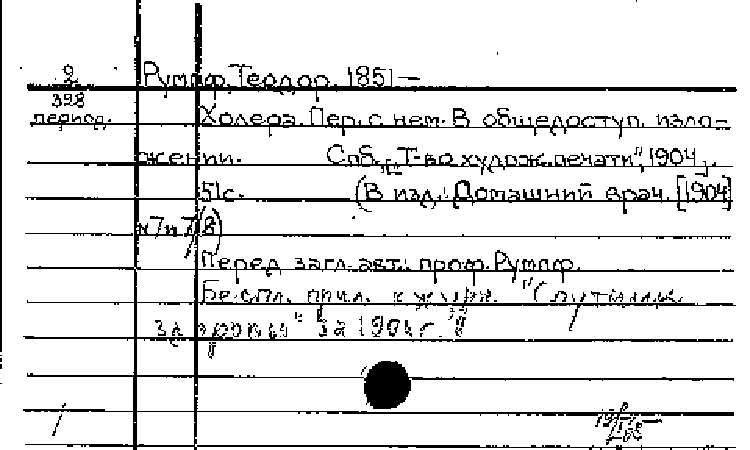 2 Румпф, Теодор, 1851 —
398
период. Холера. Пер. с нем. В общедоступ. изло-
жении. Спб., "Т-во худож. печати", 1904.
51с. (В изд.: Домашний врач. [1904]
№7и7/8)
Перед загл. авт.: проф. Румпф.
Беспл. прил. к журн. "Спутник
здоровья" за 1904г.
/